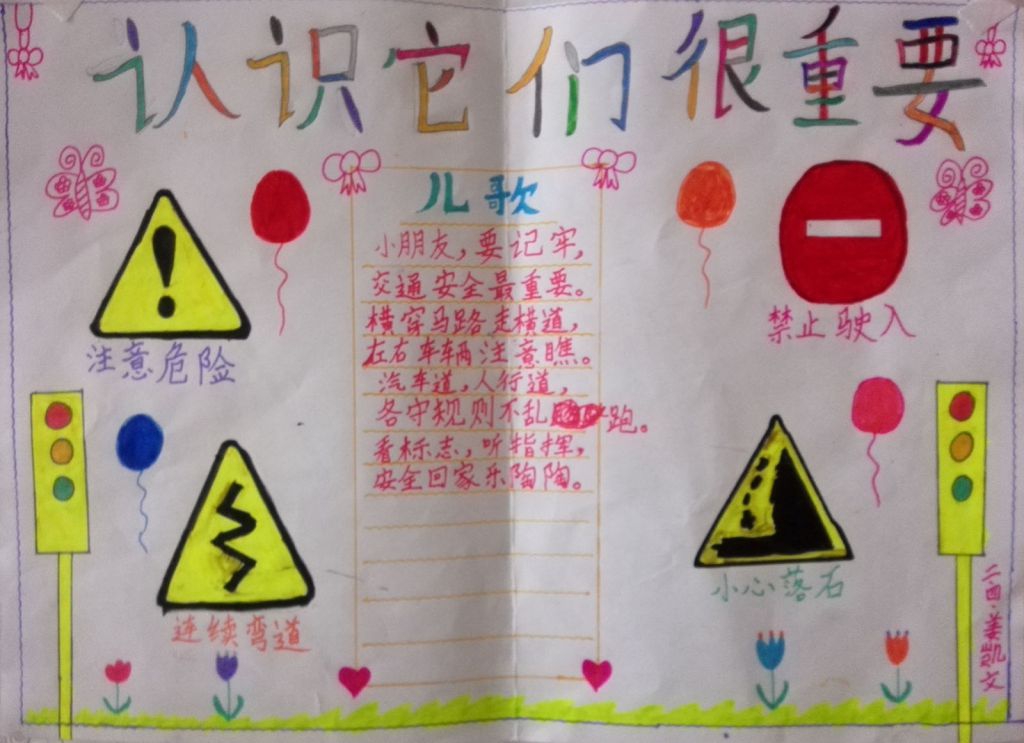 认识它们很重要
儿歌
小朋友,要记牢,
交通安全最重要。
横穿马路走横道,
左右车辆注意瞧。
汽车道,人行道,
各守规则不乱跑。
看标志,听指挥,
安全回家乐陶陶。
注意危险
连续弯道
禁止驶入
小心落石
二、四·姜凯文